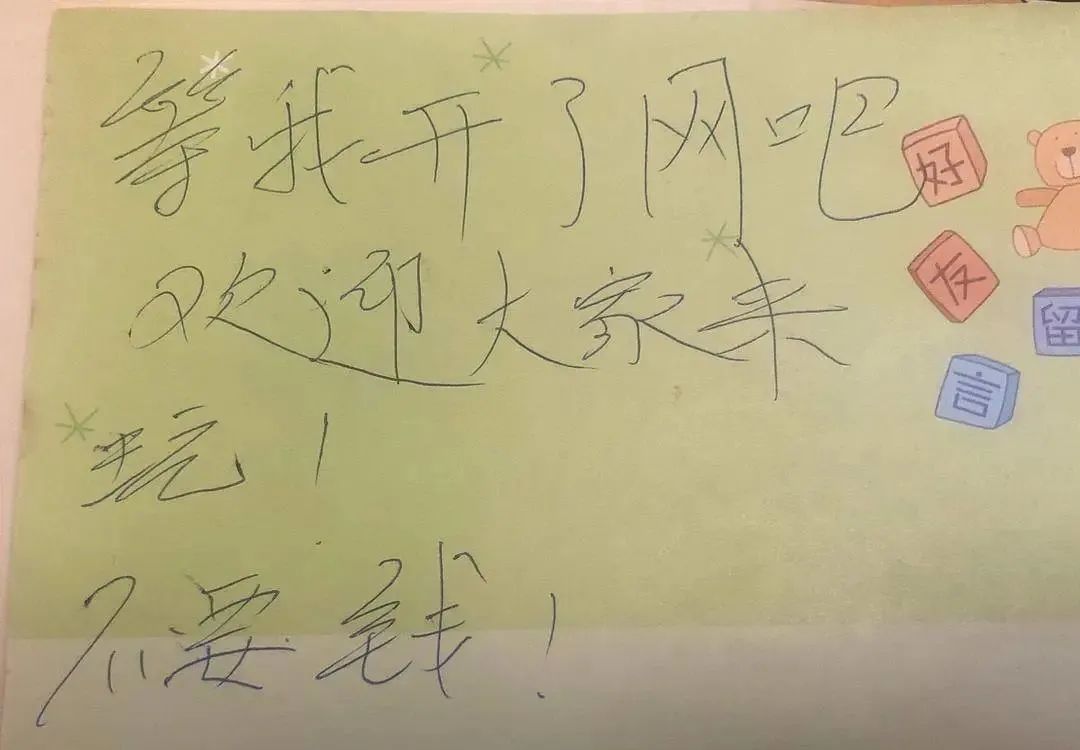 等我开了网吧
欢迎大家来
玩！
不要钱！
好
友
留
言